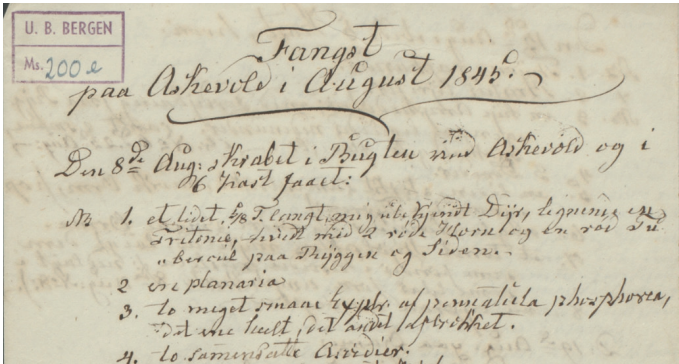 U. B. BERGEN
Ms. 200 e
Fangst
paa Askevold i August 1845.
Den 8de Aug: skrabet i Bugten ved Askevold og i
6 Kast faaet:
No 1. et lidet, 1/8 T. langt, mig ubekjendt Dyr, lignende en
Tritonie, hvidt med 2 røde Horn og en rød Tu
bercul paa Ryggen og Siden.
2 en planaria
3. to meget smaae Explr. af pennatula phosphorea,
det ene heelt, det andet
4. to samensatte Ascidier.